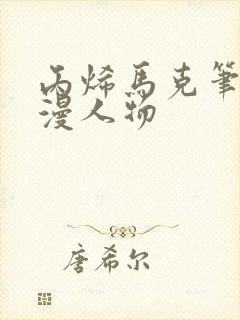 丙烯马克筆
漫人物
唐希尔